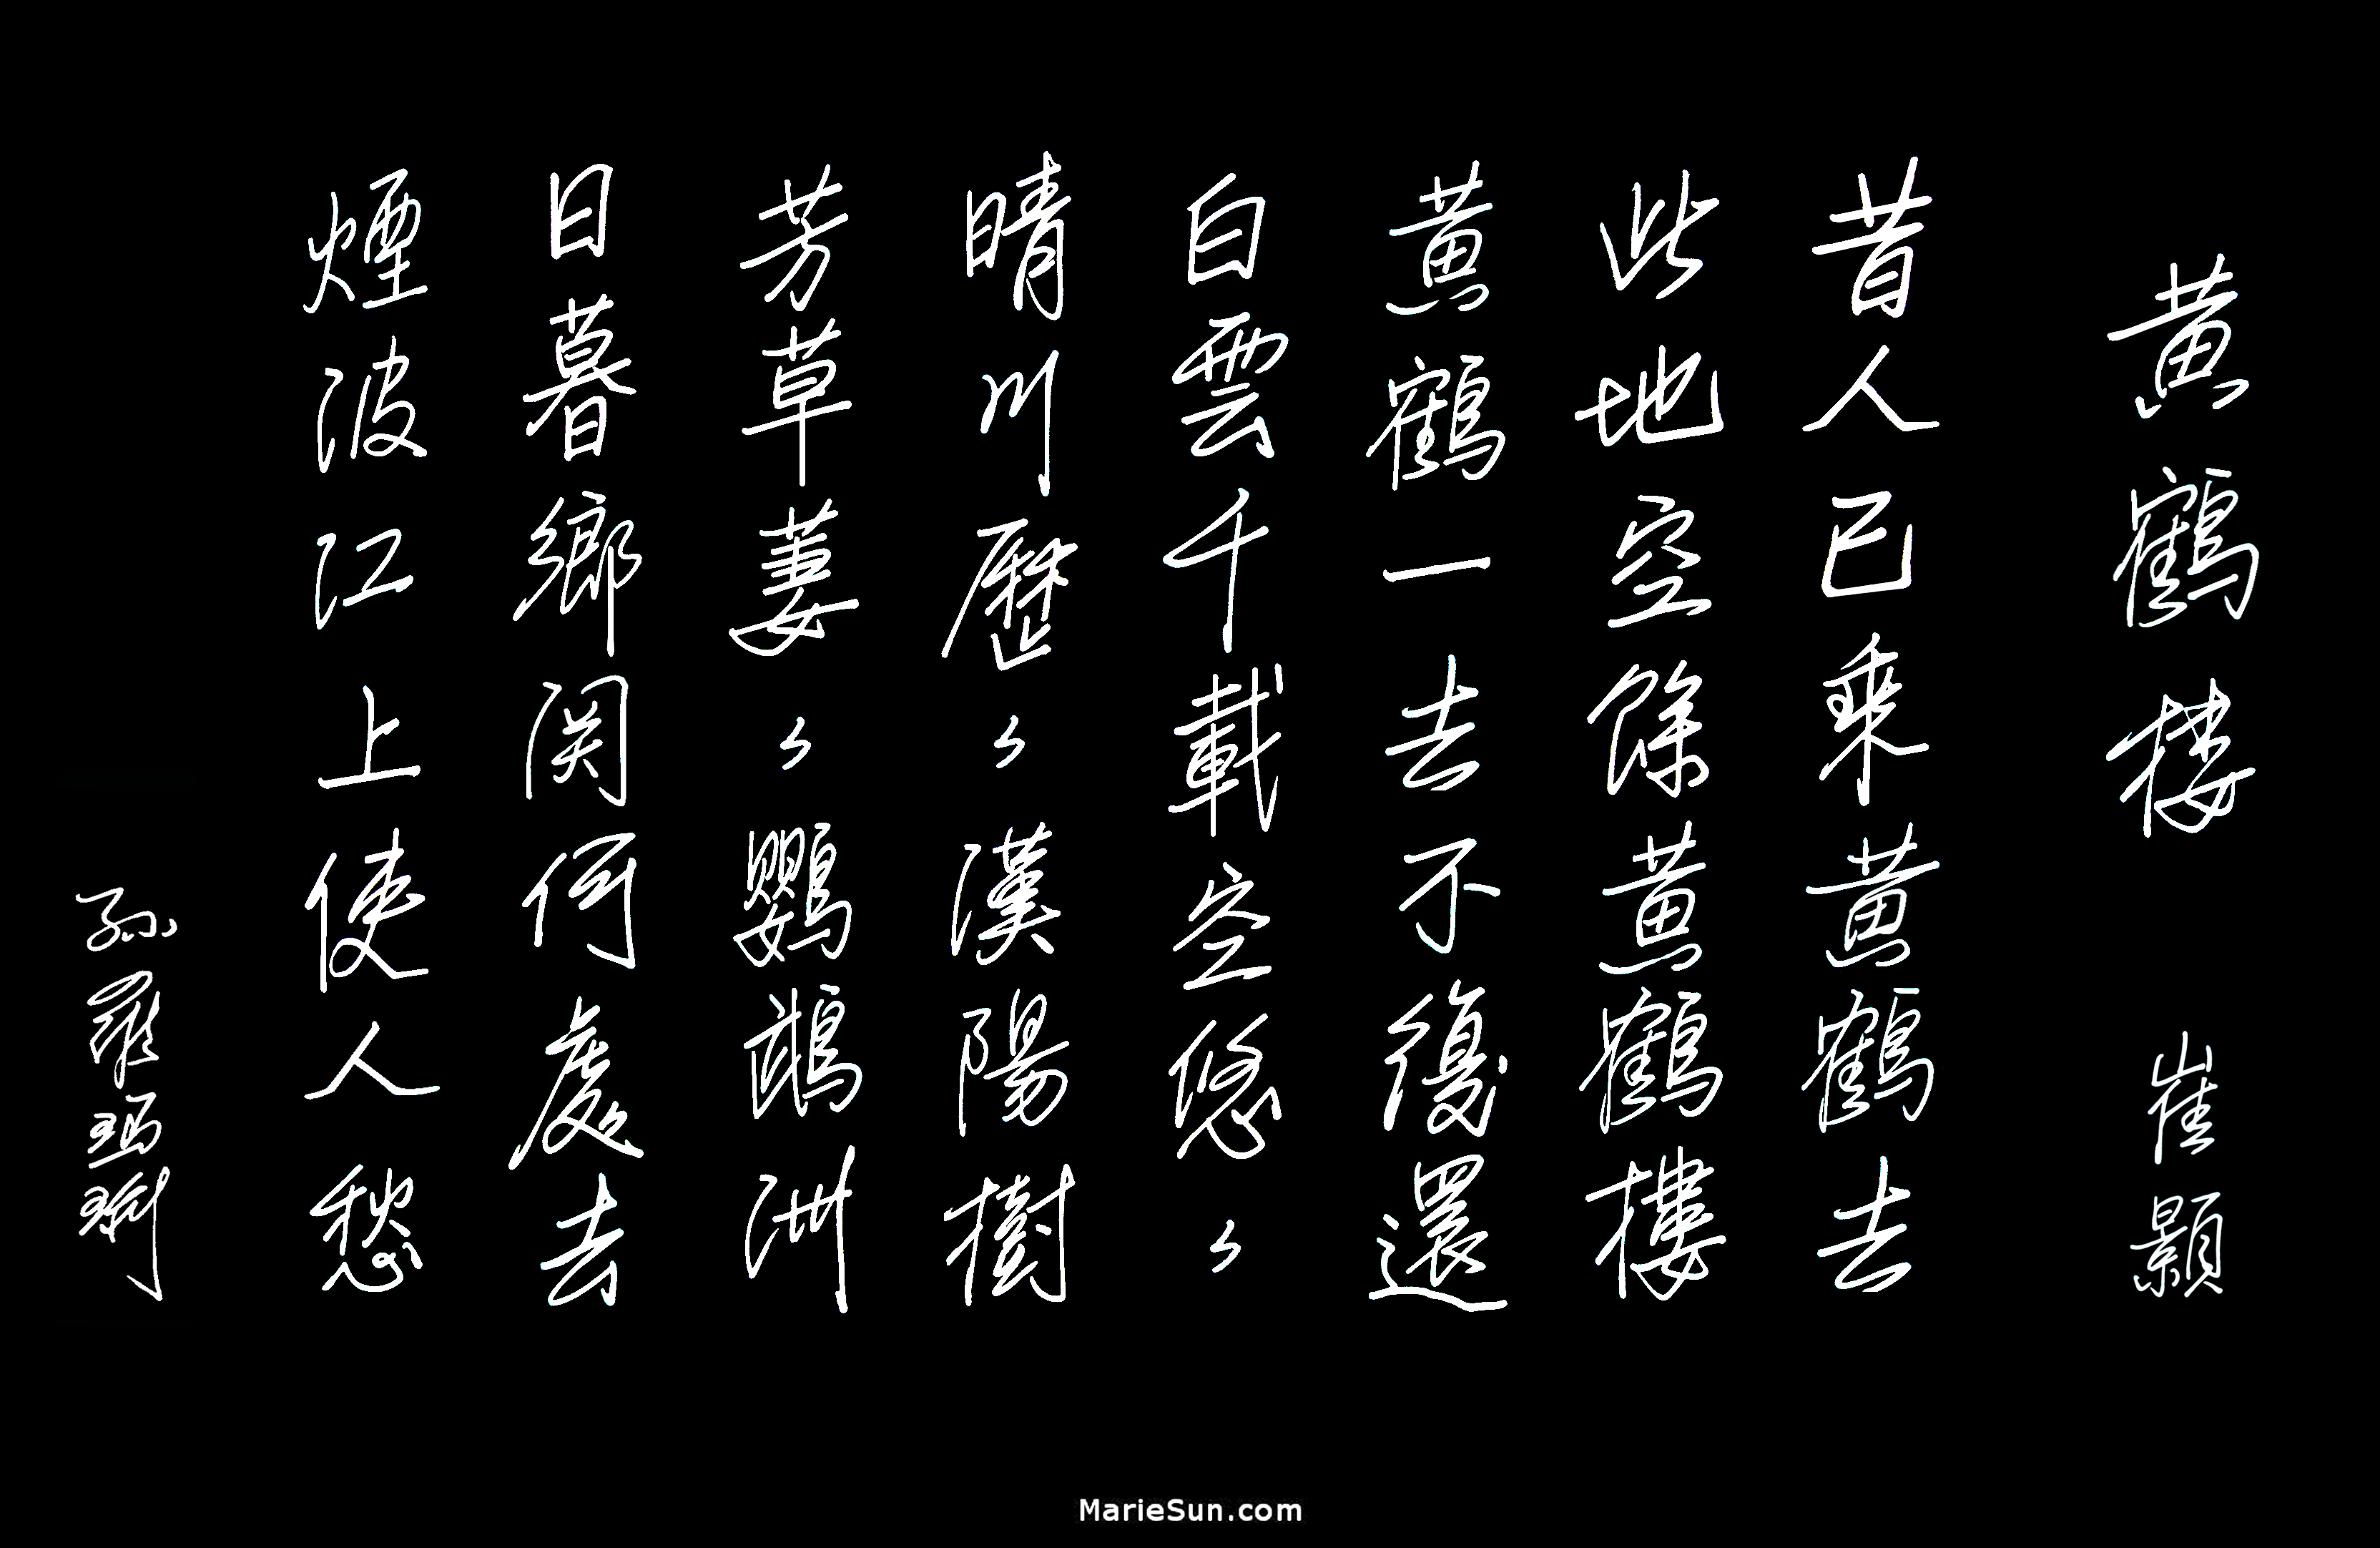 黃鶴樓 崔顥
昔人已乘黃鶴去
此地空餘黃鶴樓
黃鶴一去不復還
白雲千載空悠々
晴川歷々漢陽樹
芳草萋々鸚鵡洲
日暮鄉関何處去
煙波江上使人愁
孙羅瑪琍
MarieSun.com